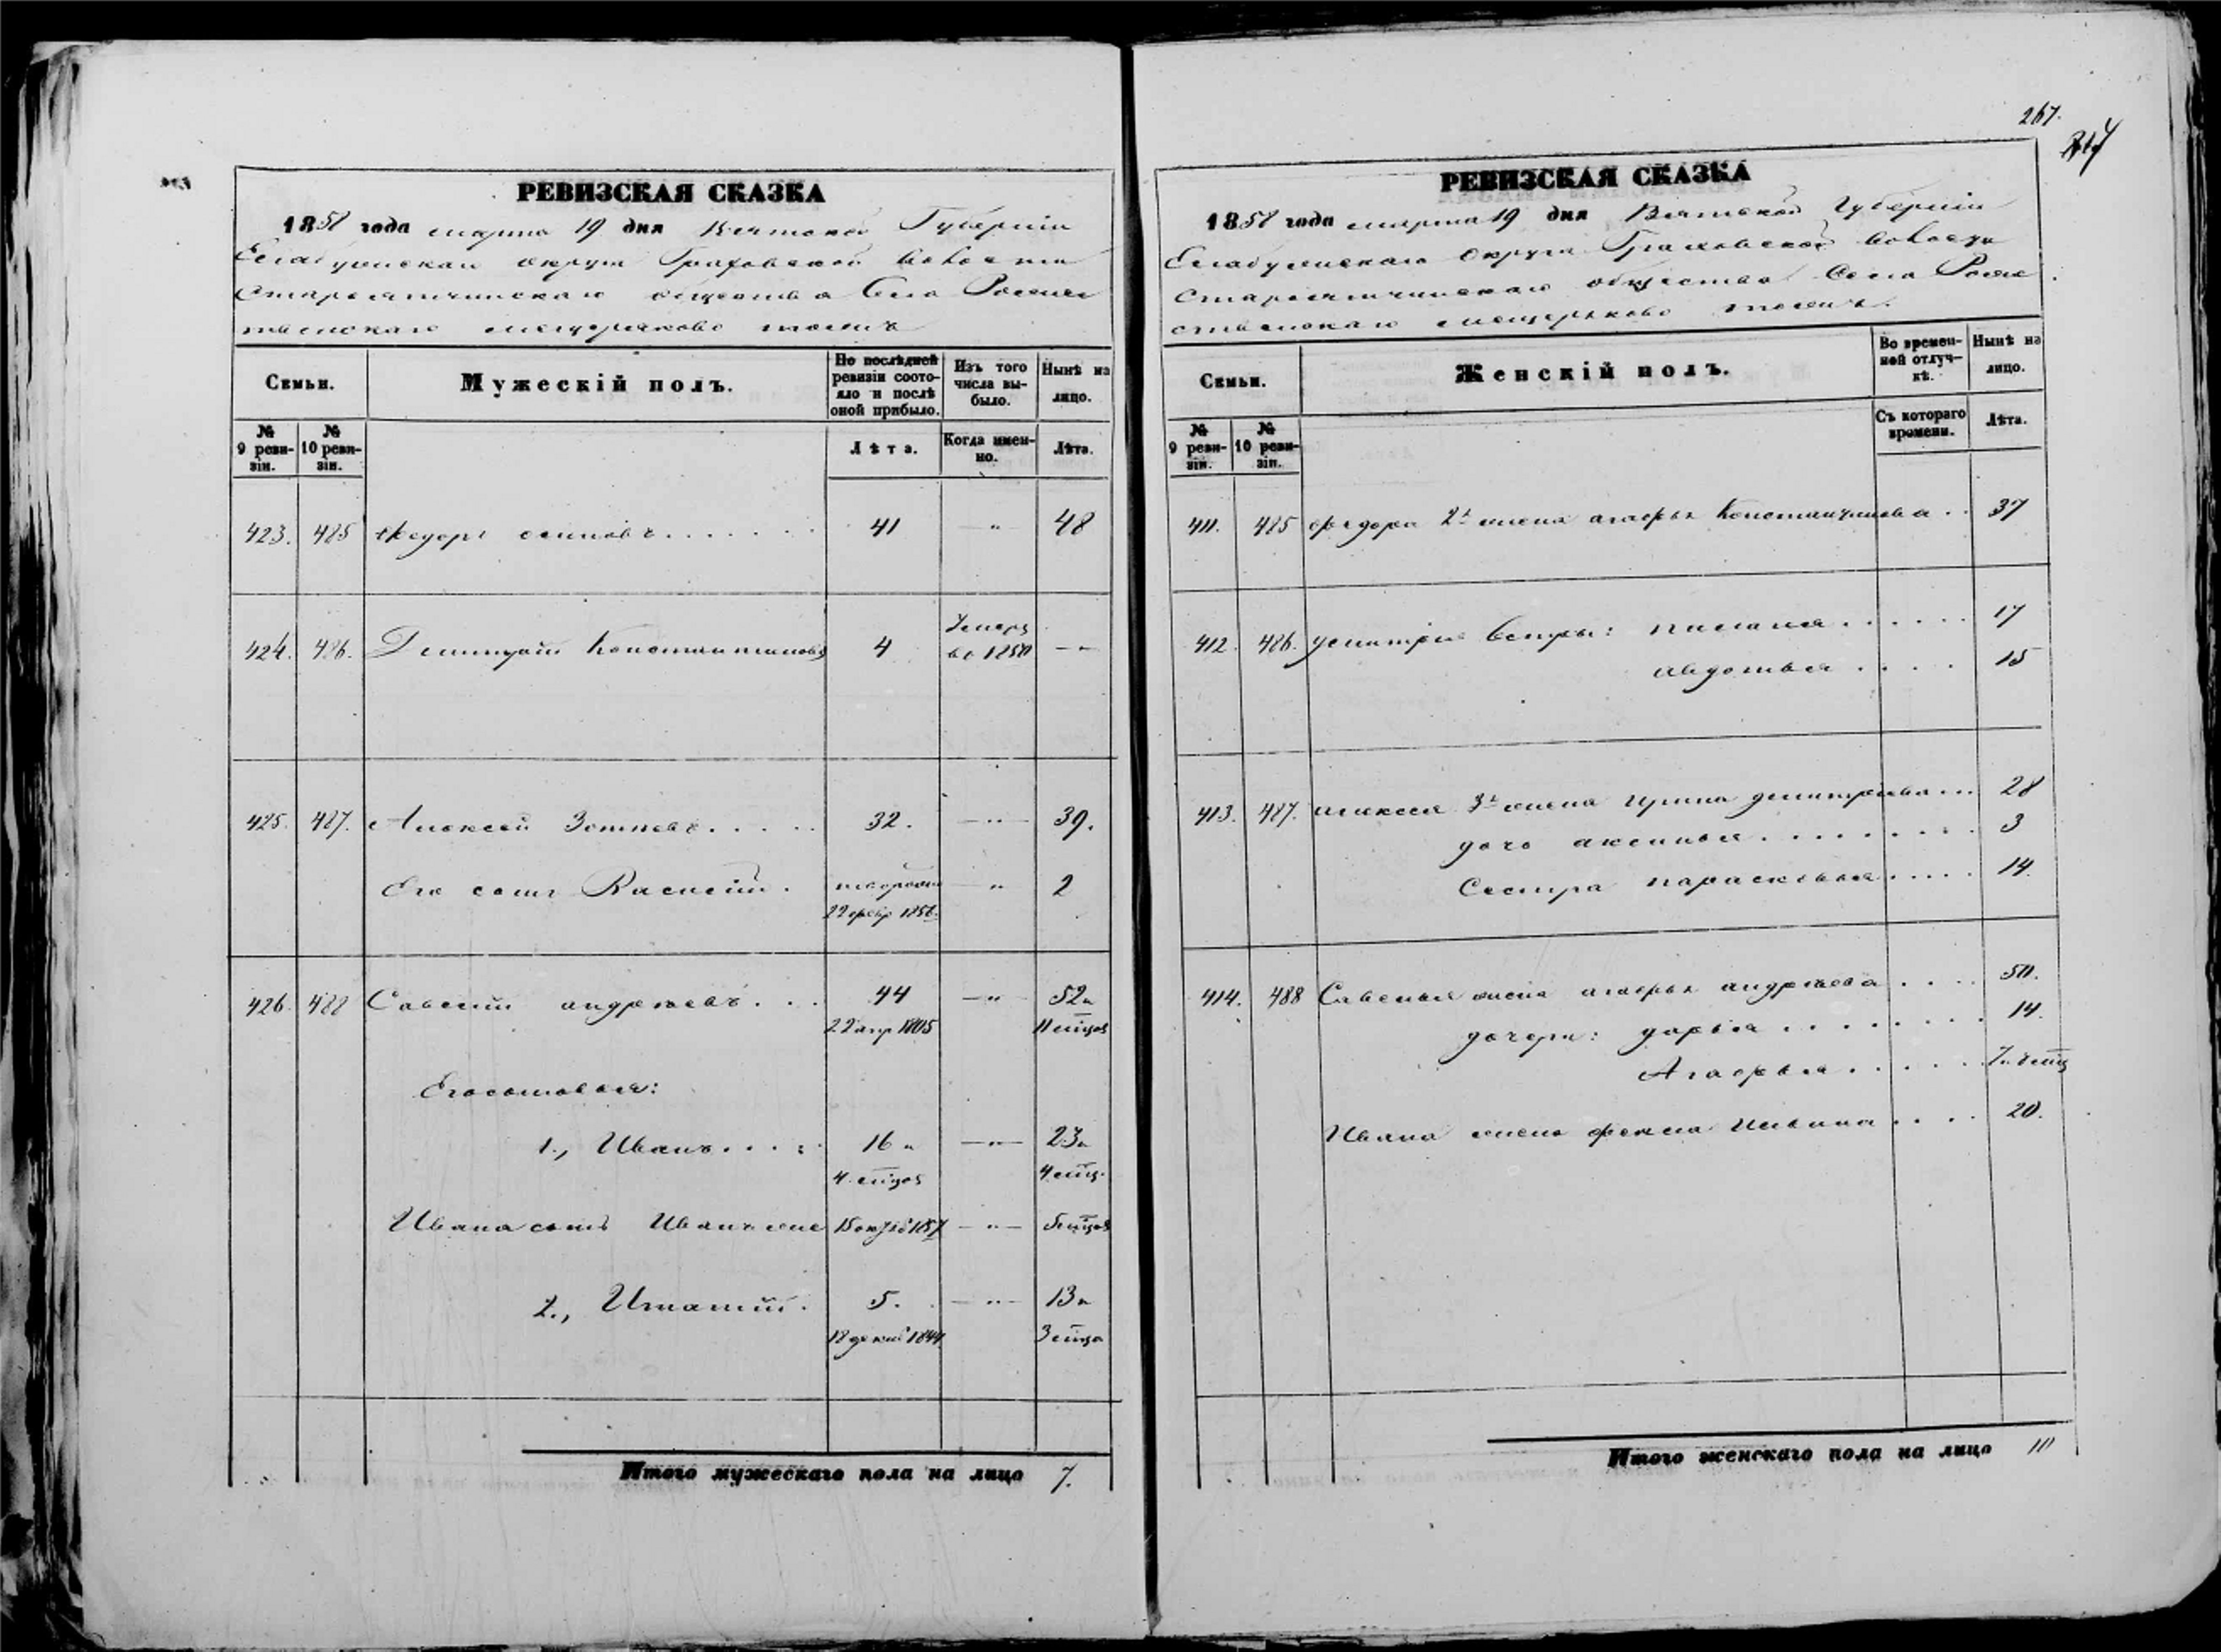 267.
РЕВИЗСКАЯ СКАЗКА
1858 года марта 19 дня Вятской Губернiи
Елабужскаго округа Граховской волости
общества Села Рождес
твенскаго мещеряково тожъ
Семьи.
Мужескiй полъ.
По послѣдней ревизiи состояло и послѣ оной прибыло.
Изъ того числа выбыло.
Нынѣ на лицо.
№ 9 ревизiи.
№ 10 ревизiи.
Лѣта.
Когда именно.
Лѣта.
423. 485 Федоръ осиповъ 41 — " 48
424. 486. Димитрiй Константиновъ 4 Умеръ въ 1850 — "
425. 487. Алексей Зотѣевъ 32. — " — 39.
Его сынъ Василiй. — " 2
22 фев 1856.
426. 488 Савелiй андрѣевъ 44 — " 52 "
22 апр 1805 11 мцов
Его сыновья:
1., Иванъ 16 " — " — 23 "
4 мцов 4 мц.
Ивана сынъ 15 октяб 1857 — " — 5 мцов
2., Игнатiй. 5. — " — 13 "
18 декаб 1844 3 мца
Итого мужескаго пола на лицо 7.
РЕВИЗСКАЯ СКАЗКА
1858 года марта 19 дня Вятской Губернiи
Елабужскаго Округа Граховской волости
общества Села Рожде
ственскаго мещеряково тожъ.
Семьи.
Женскiй полъ.
Во временной отлучкѣ.
Нынѣ на лицо.
№ 9 ревизiи.
№ 10 ревизiи.
Съ котораго времени.
Лѣта.
411. 485 федора 2я жена агафья Константинова 37
412. 486. димитрiя сестры: 17
авдотья 15
413. 487. алексея жена ирина димитрiева 28
дочь аксинья 3
Сестра парасковья 14.
414. 488 Савелья жена агафья андрѣева 50.
дочери: дарья 14.
Агафья
Ивана жена фекла 20.
Итого женскаго пола на лицо 10